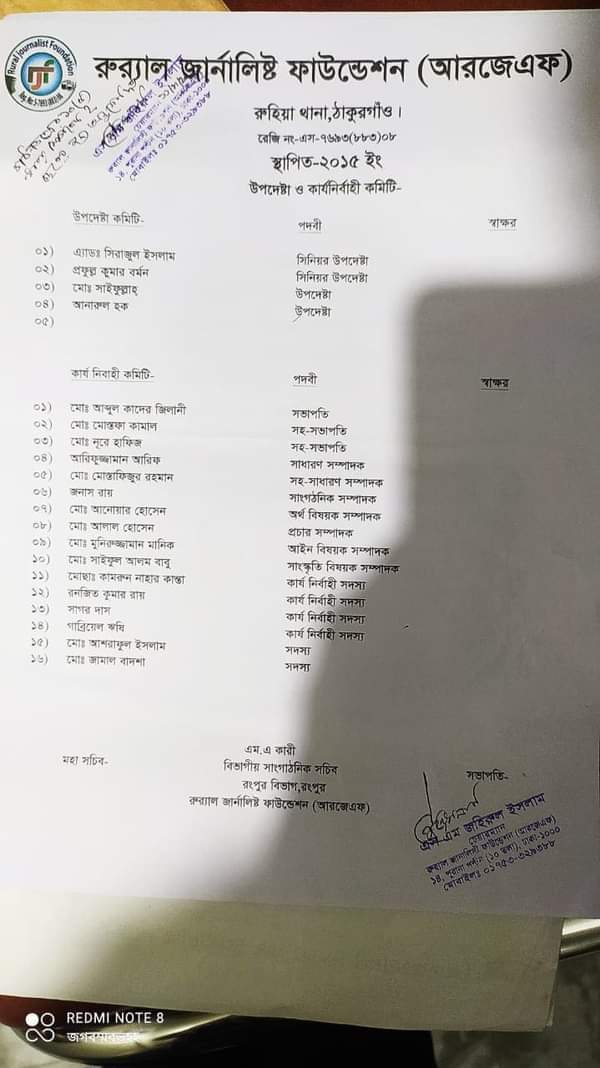 Rural Journalist Foundation
RJF
রুর‍্যাল জার্নালিষ্ট ফাউন্ডেশন (আরজেএফ)
রুহিয়া থানা,ঠাকুরগাঁও।
রেজি নং-এস-৭৬৯৩(৮৮৩)০৮
স্থাপিত-২০১৫ ইং
উপদেষ্টা ও কার্যনির্বাহী কমিটি-
উপদেষ্টা কমিটি- পদবী স্বাক্ষর
০১) এ্যাডঃ সিরাজুল ইসলাম সিনিয়র উপদেষ্টা
০২) প্রফুল্ল কুমার বর্মন সিনিয়র উপদেষ্টা
০৩) মোঃ সাইফুল্লাহ্ উপদেষ্টা
০৪) আনারুল হক উপদেষ্টা
০৫)
কার্য নির্বাহী কমিটি- পদবী স্বাক্ষর
০১) মোঃ আব্দুল কাদের জিলানী সভাপতি
০২) মোঃ মোস্তফা কামাল সহ-সভাপতি
০৩) মোঃ নূরে হাফিজ সহ-সভাপতি
০৪) আরিফুজ্জামান আরিফ সাধারণ সম্পাদক
০৫) মোঃ মোস্তাফিজুর রহমান সহ-সাধারণ সম্পাদক
০৬) জনাস রায় সাংগঠনিক সম্পাদক
০৭) মোঃ আনোয়ার হোসেন অর্থ বিষয়ক সম্পাদক
০৮) মোঃ আলাল হোসেন প্রচার সম্পাদক
০৯) মোঃ মুনিরুজ্জামান মানিক আইন বিষয়ক সম্পাদক
১০) মোঃ সাইফুল আলম বাবু সাংস্কৃতি বিষয়ক সম্পাদক
১১) মোছাঃ কামরুন নাহার কান্তা কার্য নির্বাহী সদস্য
১২) রনজিত কুমার রায় কার্য নির্বাহী সদস্য
১৩) সাগর দাস কার্য নির্বাহী সদস্য
১৪) গাব্রিয়েল ঋষি কার্য নির্বাহী সদস্য
১৫) মোঃ আশরাফুল ইসলাম সদস্য
১৬) মোঃ জামাল বাদশা সদস্য
মহা সচিব-
এম.এ কারী
বিভাগীয় সাংগাঠনিক সচিব
রংপুর বিভাগ,রংপুর
রুর‍্যাল জার্নালিষ্ট ফাউন্ডেশন (আরজেএফ)
সভাপতি-
এস এম জহিরুল ইসলাম
চেয়ারম্যান
রুর‍্যাল জার্নালিস্ট ফাউন্ডেশন (আরজেএফ)
১৪, পুরানা পল্টন (১০ তলা), ঢাকা-১০০০
মোবাইলঃ ০১৭৫৩-৩২৯৩৮৮
REDMI NOTE 8